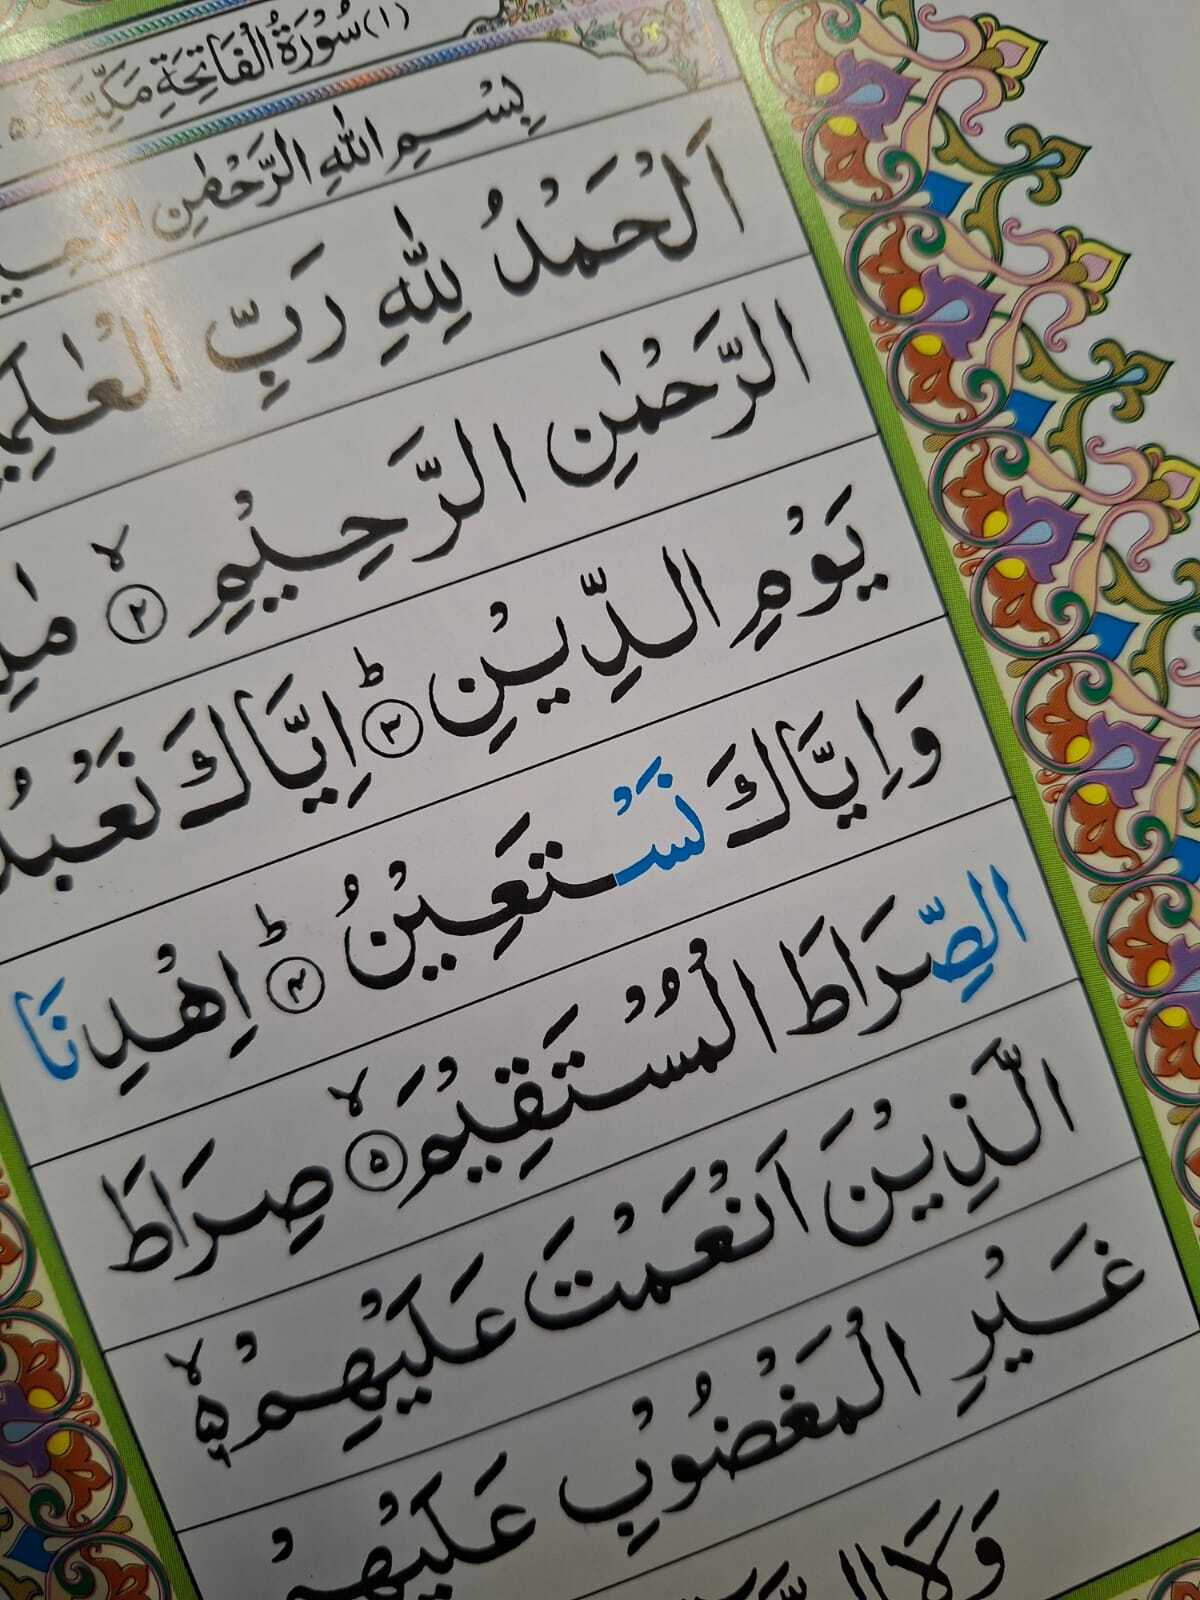 (١) سُوْرَةُ الْفَاتِحَةِ مَكِّيَّةٌ
بِسْمِ اللهِ الرَّحْمٰنِ
اَلْحَمْدُ لِلّٰهِ رَبِّ
الرَّحْمٰنِ الرَّحِيْمِ ۙ﴿٢﴾
يَوْمِ الدِّيْنِ ؕ﴿٣﴾ اِيَّاكَ نَعْبُدُ
وَاِيَّاكَ نَسْتَعِيْنُ ؕ﴿٤﴾ اِهْدِنَا
الصِّرَاطَ الْمُسْتَقِيْمَ ۙ﴿٥﴾ صِرَاطَ
الَّذِيْنَ اَنْعَمْتَ عَلَيْهِمْ ۙ۬
غَيْرِ الْمَغْضُوْبِ عَلَيْهِمْ
وَلَا